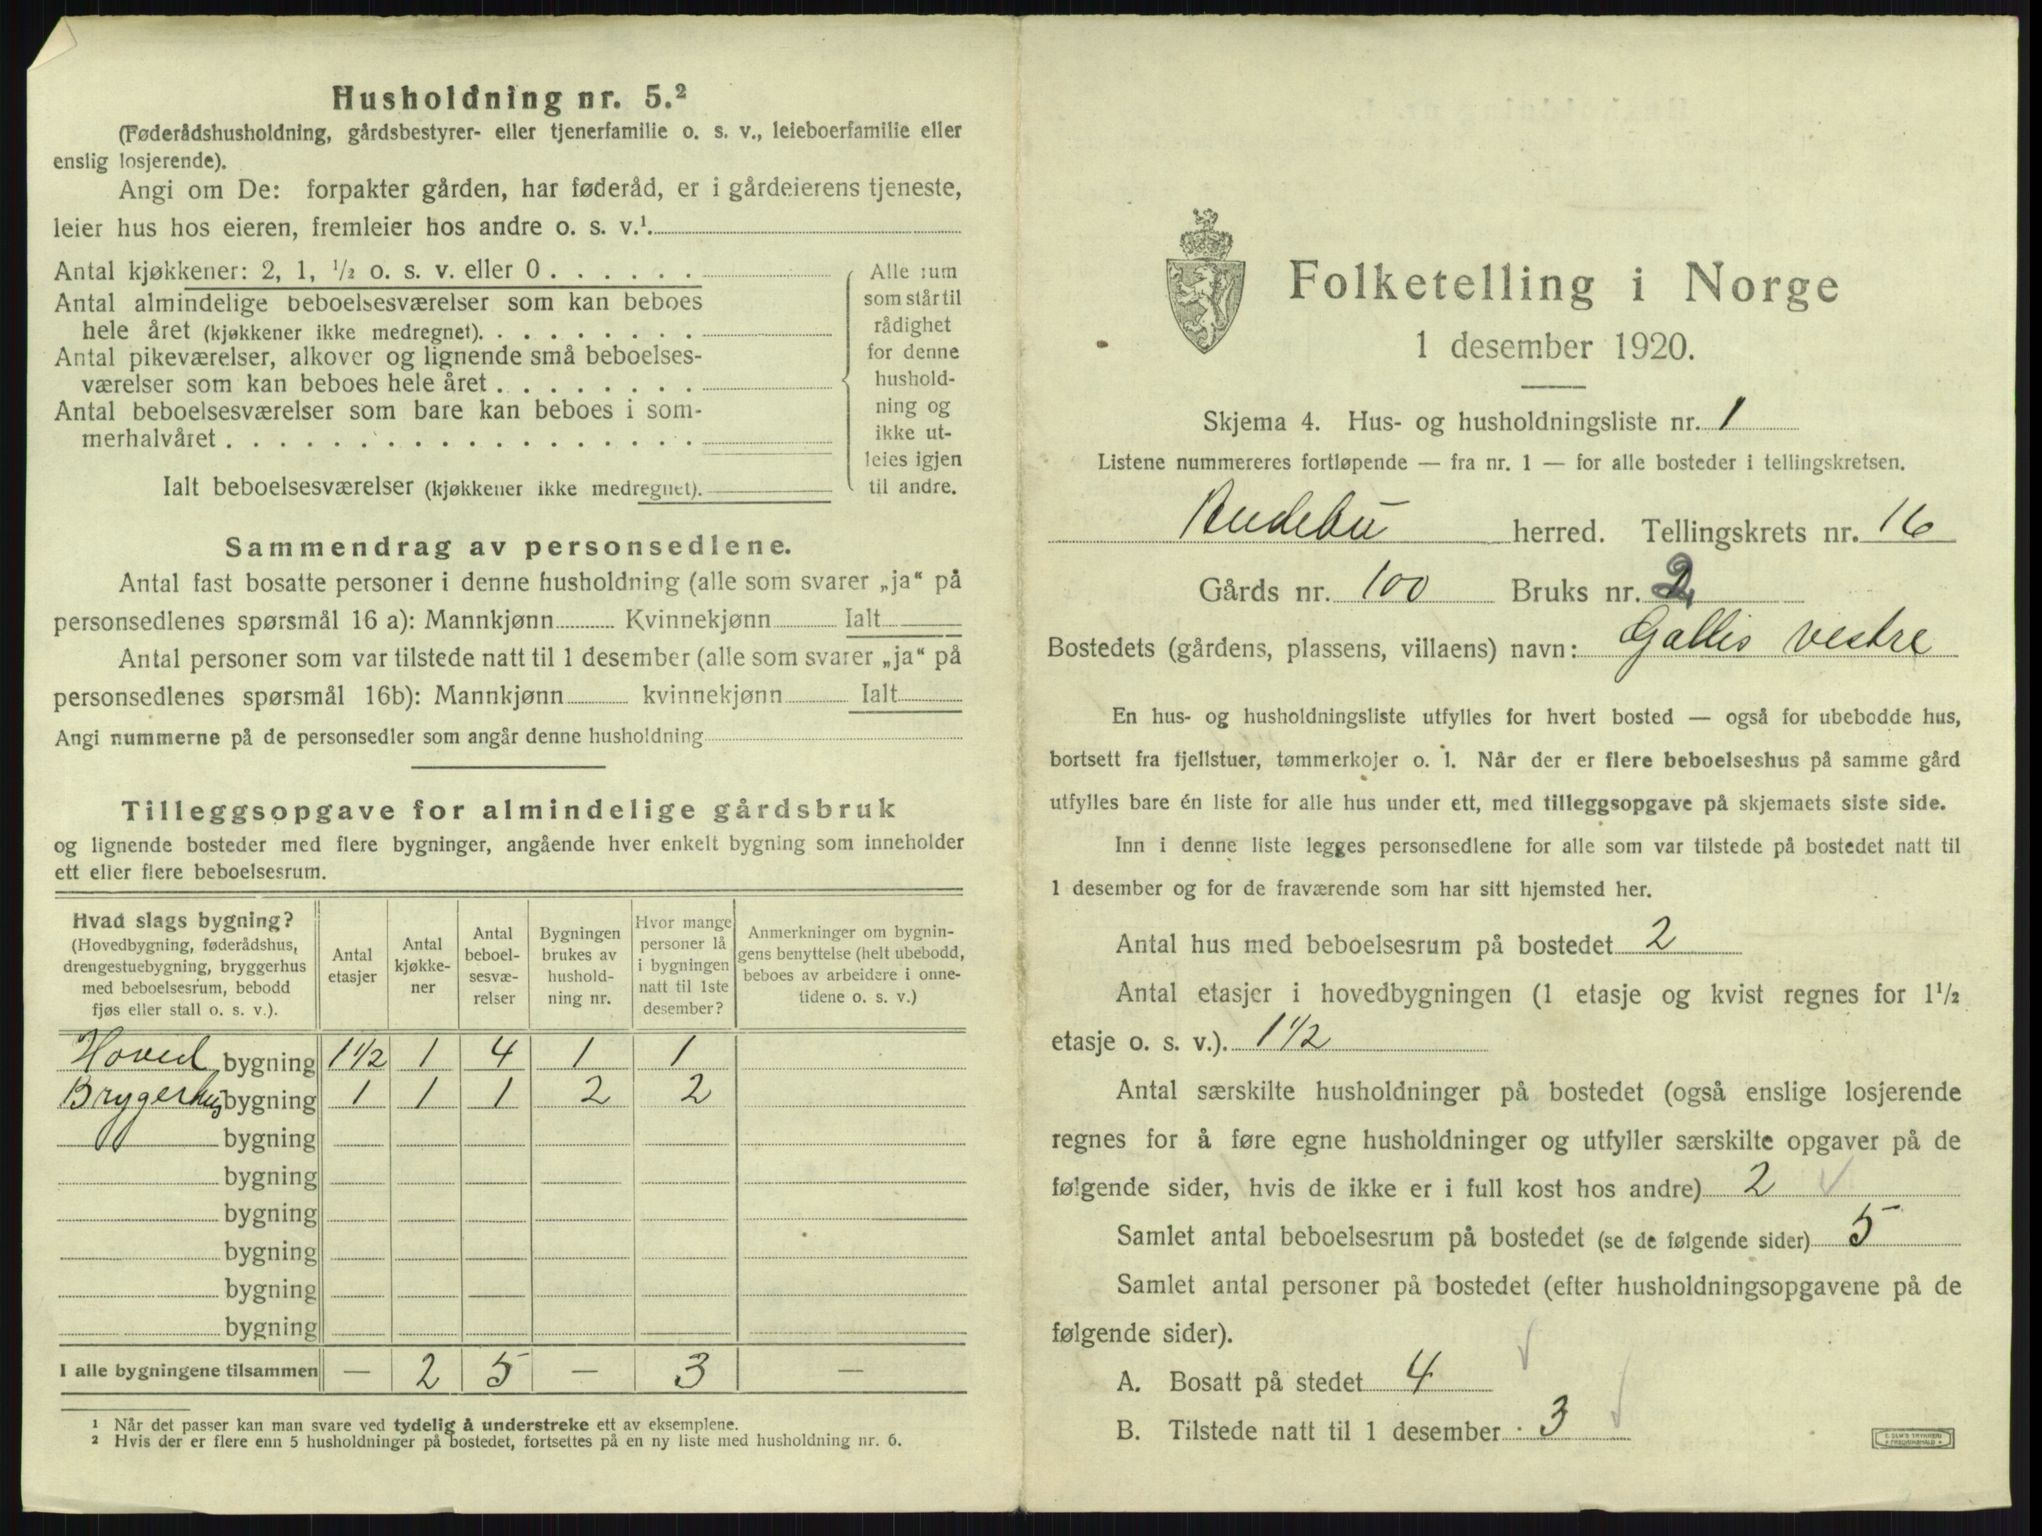 Husholdning nr. 5.²
(Føderådshusholdning, gårdsbestyrer- eller tjenerfamilie o. s. v., leieboerfamilie eller
enslig losjerende).
Angi om De: forpakter gården, har føderåd, er i gårdeierens tjeneste,
leier hus hos eieren, fremleier hos andre o. s. v.¹
Antal kjøkkener: 2, 1, ½ o. s. v. eller 0 . . . . . .
Antal almindelige beboelsesværelser som kan beboes
hele året (kjøkkener ikke medregnet). . . . . . . . .
Antal pikeværelser, alkover og lignende små beboelses-
værelser som kan beboes hele året . . . . . . . .
Antal beboelsesværelser som bare kan beboes i som-
merhalvåret . . . . . . . . . . . . . . . . . .
Ialt beboelsesværelser (kjøkkener ikke medregnet).
Alle rum
som står til
rådighet
for denne
hushold-
ning og
ikke ut-
leies igjen
til andre.
Sammendrag av personsedlene.
Antal fast bosatte personer i denne husholdning (alle som svarer „ja“ på
personsedlenes spørsmål 16 a): Mannkjønn Kvinnekjønn Ialt
Antal personer som var tilstede natt til 1 desember (alle som svarer „ja“ på
personsedlenes spørsmål 16b): Mannkjønn kvinnekjønn Ialt
Angi nummerne på de personsedler som angår denne husholdning
Tilleggsopgave for almindelige gårdsbruk
og lignende bosteder med flere bygninger, angående hver enkelt bygning som inneholder
ett eller flere beboelsesrum.
Hvad slags bygning?
(Hovedbygning, føderådshus,
drengestuebygning, bryggerhus
med beboelsesrum, bebodd
fjøs eller stall o. s. v.).
Antal
etasjer
Antal
kjøkke-
ner
Antal
beboel-
sesvæ-
relser
Bygningen
brukes av
hushold-
ning nr.
Hvor mange
personer lå
i bygningen
natt til 1ste
desember?
Anmerkninger om bygnin-
gens benyttelse (helt ubebodd,
beboes av arbeidere i onne-
tidene o. s. v.)
Hoved bygning 1½ 1 4 1 1
Brygerhus bygning 1 1 1 2 2
bygning
bygning
bygning
bygning
bygning
bygning
I alle bygningene tilsammen — 2 5 — 3 —
¹ Når det passer kan man svare ved tydelig å understreke ett av eksemplene.
² Hvis der er flere enn 5 husholdninger på bostedet, fortsettes på en ny liste med husholdning nr. 6.
Folketelling i Norge
1 desember 1920.
Skjema 4. Hus- og husholdningsliste nr. 1
Listene nummereres fortløpende — fra nr. 1 — for alle bosteder i tellingskretsen.
Andebu herred. Tellingskrets nr. 16
Gårds nr. 100 Bruks nr. 2
Bostedets (gårdens, plassens, villaens) navn: Gallis vestre
En hus- og husholdningsliste utfylles for hvert bosted — også for ubebodde hus,
bortsett fra fjellstuer, tømmerkojer o. l. Når der er flere beboelseshus på samme gård
utfylles bare én liste for alle hus under ett, med tilleggsopgave på skjemaets siste side.
Inn i denne liste legges personsedlene for alle som var tilstede på bostedet natt til
1 desember og for de fraværende som har sitt hjemsted her.
Antal hus med beboelsesrum på bostedet 2
Antal etasjer i hovedbygningen (1 etasje og kvist regnes for 1½
etasje o. s. v.). 1½
Antal særskilte husholdninger på bostedet (også enslige losjerende
regnes for å føre egne husholdninger og utfyller særskilte opgaver på de
følgende sider, hvis de ikke er i full kost hos andre) 2
Samlet antal beboelsesrum på bostedet (se de følgende sider) 5
Samlet antal personer på bostedet (efter husholdningsopgavene på de
følgende sider).
A. Bosatt på stedet 4
B. Tilstede natt til 1 desember 3